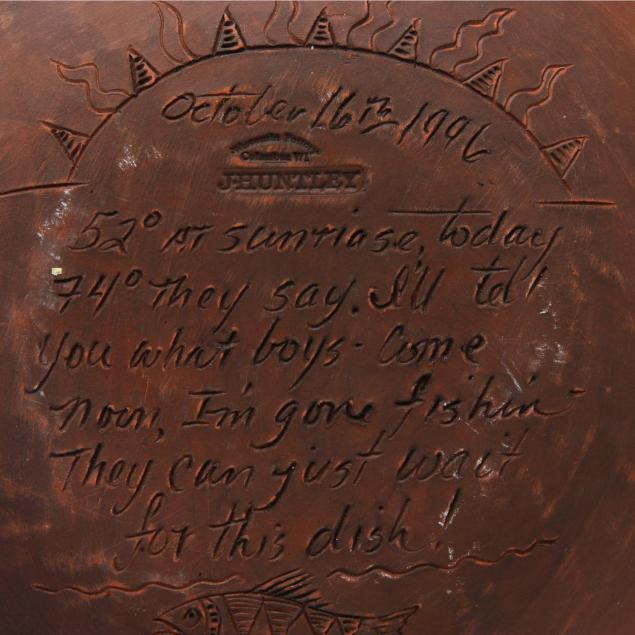 October 16th 1996
Columbus WI
J·HUNTLEY
52° AT sunriase, today
74° They say. I'll tell
you what boys - Come
noon, I'm gone fishin -
They can just wait
for this dish!